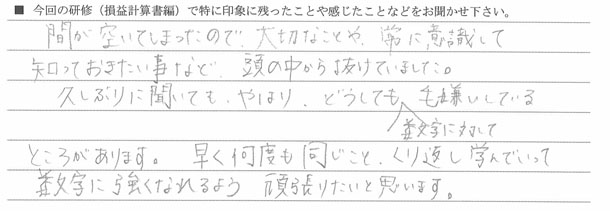 ■ 今回の研修（損益計算書編）で特に印象に残ったことや感じたことなどをお聞かせ下さい。
間が空いてしまったので、大切なことや、常に意識して
知っておきたい事など、頭の中から抜けていました。
久しぶりに聞いても、やはり、どうしても 毛嫌いしている
数字に対して
ところがあります。 早く何度も同じこと、くり返し学んでいって
数字に強くなれるよう 頑張りたいと思います。